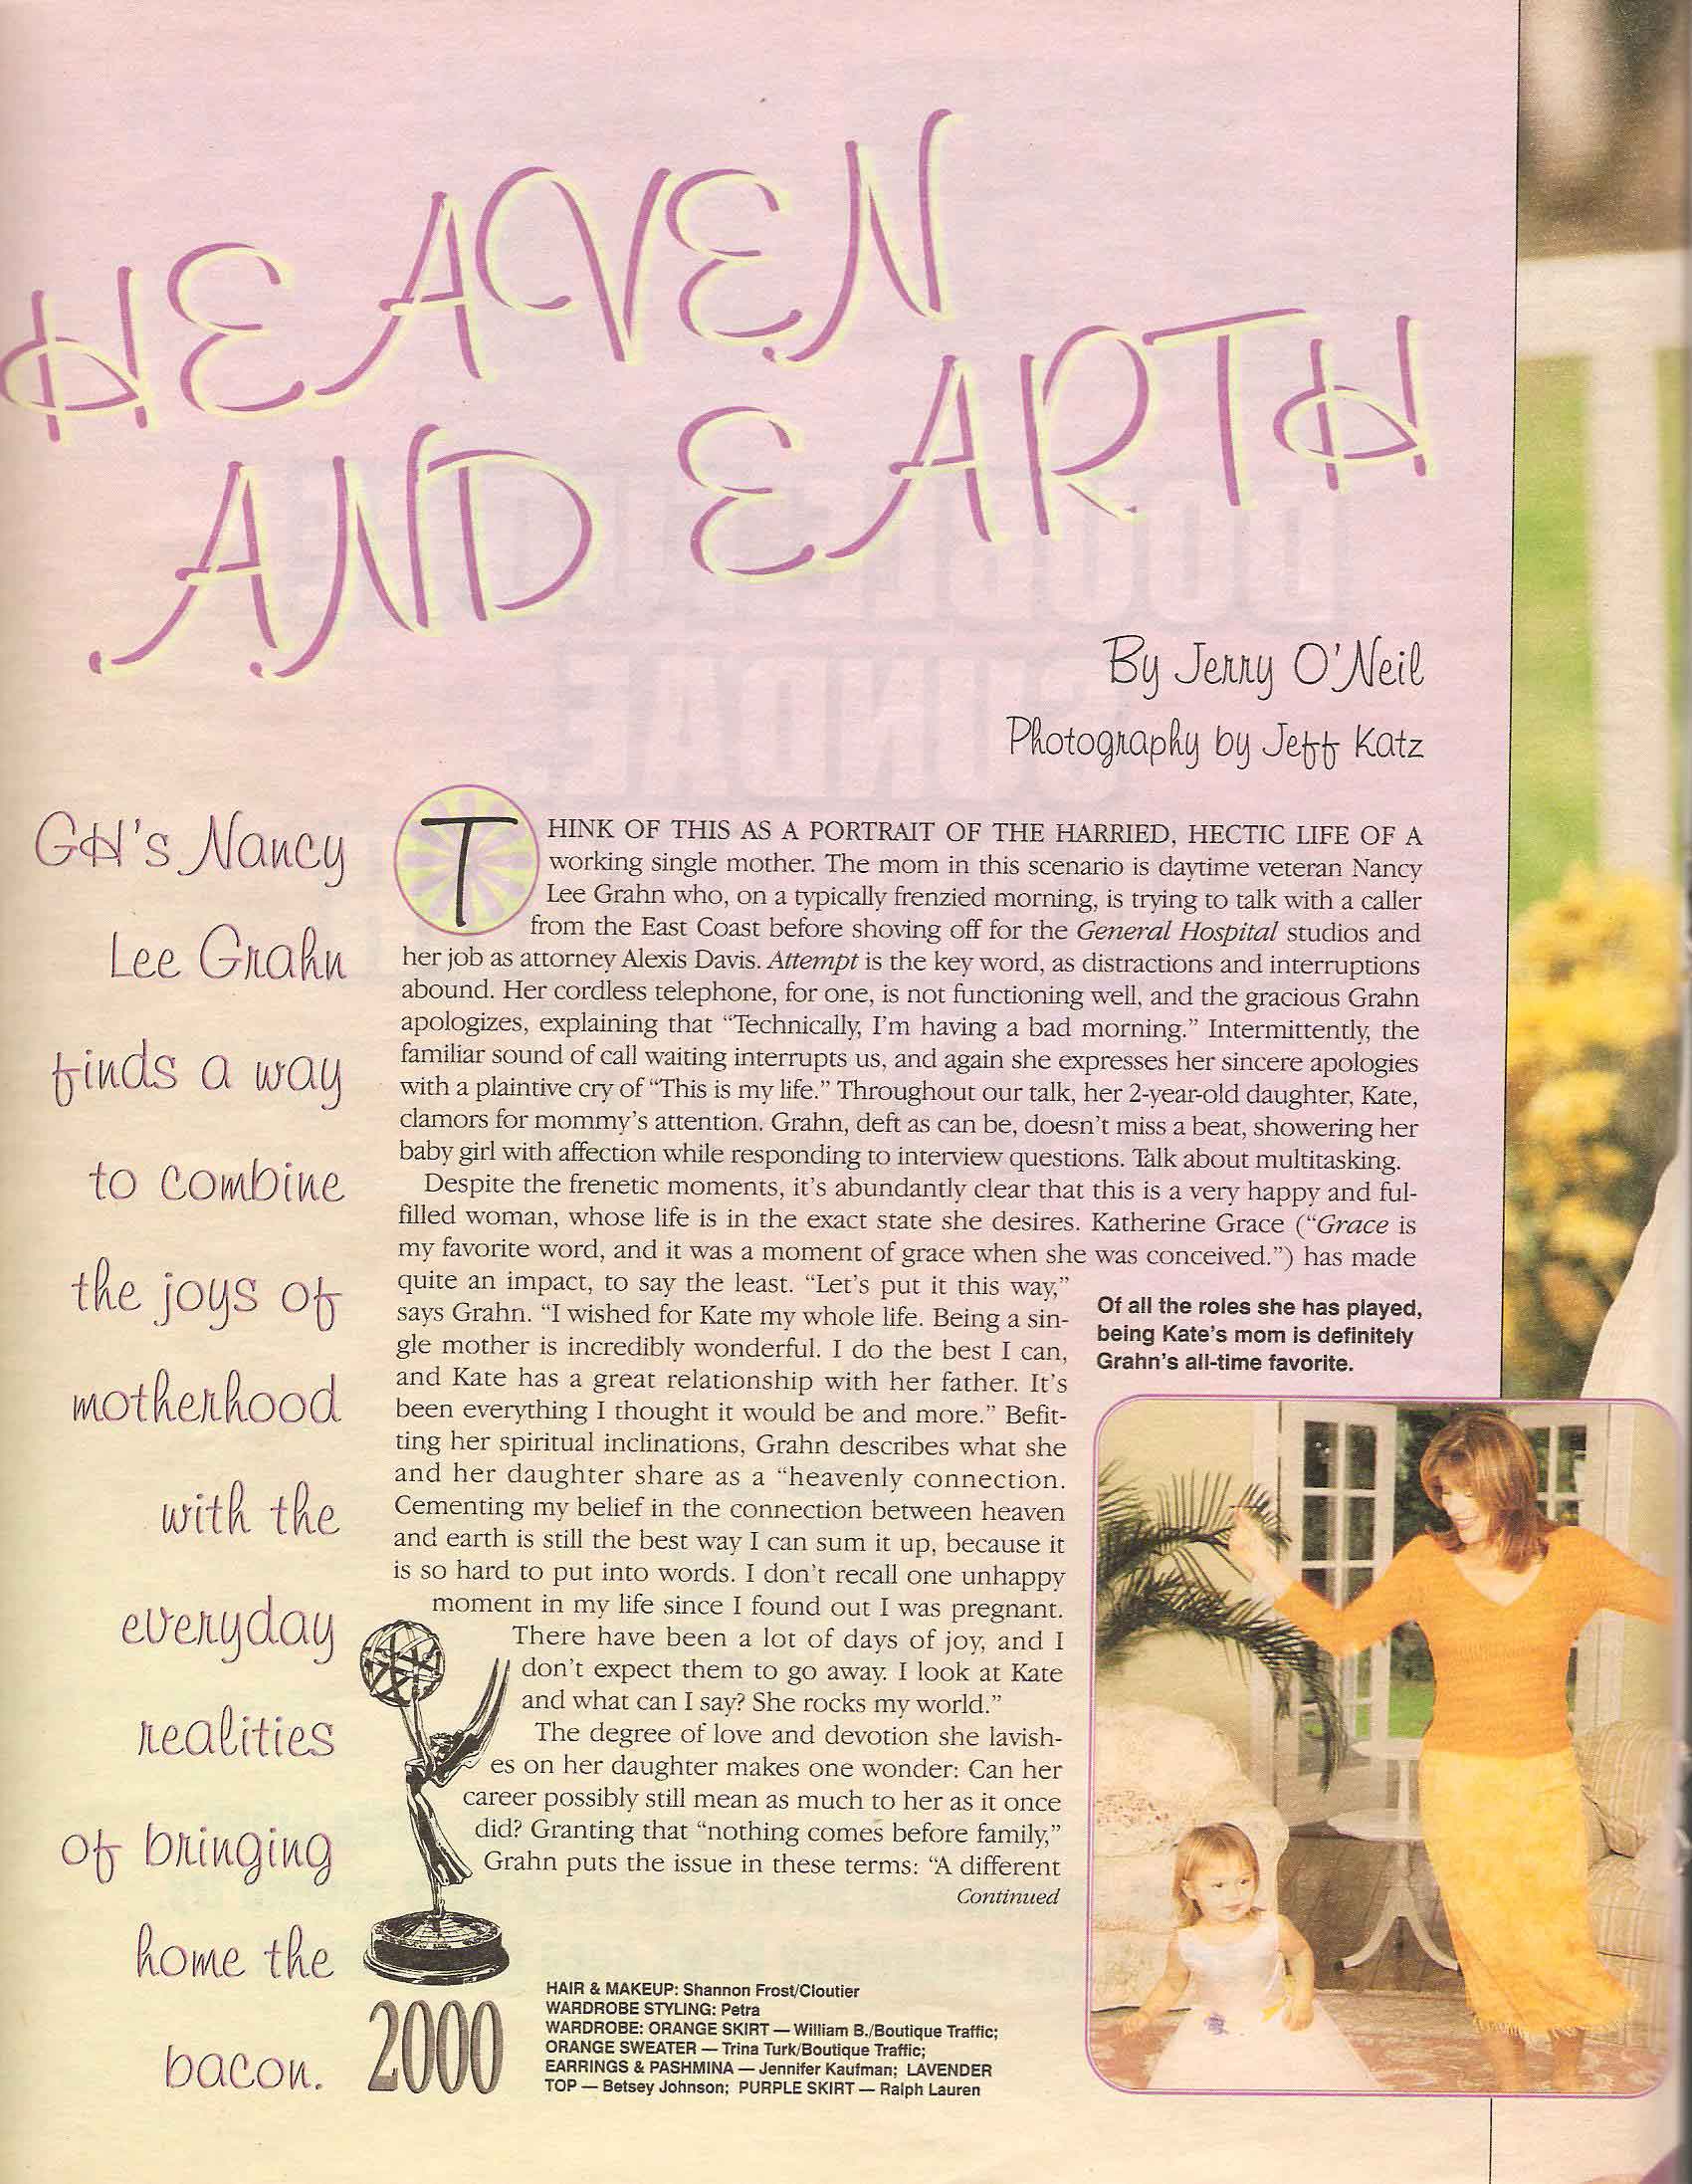 HEAVEN
AND EARTH
By Jerry O'Neil
Photography by Jeff Katz
GH's Nancy
Lee Grahn
finds a way
to combine
the joys of
motherhood
with the
everyday
realities
of bringing
home the
bacon.
THINK OF THIS AS A PORTRAIT OF THE HARRIED, HECTIC LIFE OF A
working single mother. The mom in this scenario is daytime veteran Nancy
Lee Grahn who, on a typically frenzied morning, is trying to talk with a caller
from the East Coast before shoving off for the General Hospital studios and
her job as attorney Alexis Davis. Attempt is the key word, as distractions and interruptions
abound. Her cordless telephone, for one, is not functioning well, and the gracious Grahn
apologizes, explaining that “Technically, I'm having a bad morning.” Intermittently, the
familiar sound of call waiting interrupts us, and again she expresses her sincere apologies
with a plaintive cry of “This is my life.” Throughout our talk, her 2-year-old daughter, Kate,
clamors for mommy's attention. Grahn, deft as can be, doesn't miss a beat, showering her
baby girl with affection while responding to interview questions. Talk about multitasking.
Despite the frenetic moments, it's abundantly clear that this is a very happy and ful-
filled woman, whose life is in the exact state she desires. Katherine Grace (“Grace is
my favorite word, and it was a moment of grace when she was conceived.”) has made
quite an impact, to say the least. “Let's put it this way,”
says Grahn. “I wished for Kate my whole life. Being a sin-
gle mother is incredibly wonderful. I do the best I can,
and Kate has a great relationship with her father. It's
been everything I thought it would be and more.” Befit-
ting her spiritual inclinations, Grahn describes what she
and her daughter share as a “heavenly connection.
Cementing my belief in the connection between heaven
and earth is still the best way I can sum it up, because it
is so hard to put into words. I don't recall one unhappy
moment in my life since I found out I was pregnant.
There have been a lot of days of joy, and I
don't expect them to go away. I look at Kate
and what can I say? She rocks my world.”
The degree of love and devotion she lavish-
es on her daughter makes one wonder: Can her
career possibly still mean as much to her as it once
did? Granting that “nothing comes before family,”
Grahn puts the issue in these terms: “A different
Continued
Of all the roles she has played,
being Kate's mom is definitely
Grahn's all-time favorite.
2000
HAIR & MAKEUP: Shannon Frost/Cloutier
WARDROBE STYLING: Petra
WARDROBE: ORANGE SKIRT — William B./Boutique Traffic;
ORANGE SWEATER — Trina Turk/Boutique Traffic;
EARRINGS & PASHMINA — Jennifer Kaufman; LAVENDER
TOP — Betsey Johnson; PURPLE SKIRT — Ralph Lauren